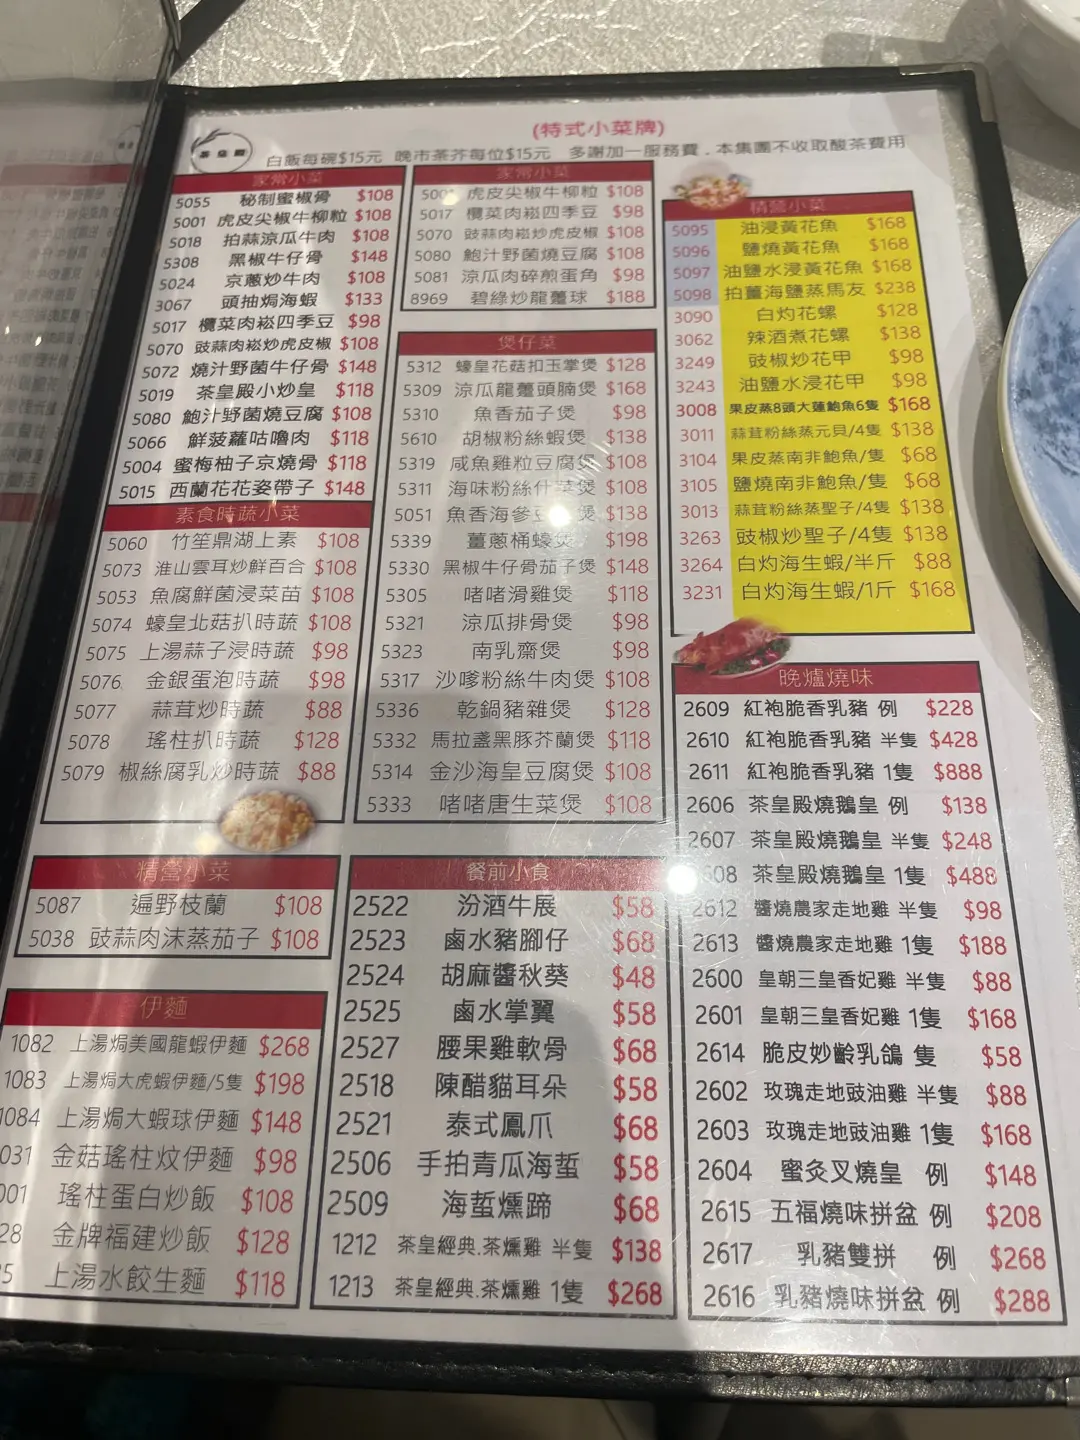 (特式小菜牌)
茶皇殿
白飯每碗$15元 晚市茶芥每位$15元 多謝加一服務費．本集團不收取酸茶費用
家常小菜
5055 秘制蜜椒骨 $108
5001 虎皮尖椒牛柳粒 $108
5018 拍蒜涼瓜牛肉 $108
5308 黑椒牛仔骨 $148
5024 京蔥炒牛肉 $108
3067 頭抽焗海蝦 $133
5017 欖菜肉崧四季豆 $98
5070 豉蒜肉崧炒虎皮椒 $108
5072 燒汁野菌牛仔骨 $148
5019 茶皇殿小炒皇 $118
5080 鮑汁野菌燒豆腐 $108
5066 鮮菠蘿咕嚕肉 $118
5004 蜜梅柚子京燒骨 $118
5015 西蘭花花姿帶子 $148
素食時蔬小菜
5060 竹笙鼎湖上素 $108
5073 淮山雲耳炒鮮百合 $108
5053 魚腐鮮菌浸菜苗 $108
5074 蠔皇北菇扒時蔬 $108
5075 上湯蒜子浸時蔬 $98
5076 金銀蛋泡時蔬 $98
5077 蒜茸炒時蔬 $88
5078 瑤柱扒時蔬 $128
5079 椒絲腐乳炒時蔬 $88
精營小菜
5087 遍野枝蘭 $108
5038 豉蒜肉沫蒸茄子 $108
伊麵
1082 上湯焗美國龍蝦伊麵 $268
1083 上湯焗大虎蝦伊麵/5隻 $198
1084 上湯焗大蝦球伊麵 $148
031 金菇瑤柱炆伊麵 $98
001 瑤柱蛋白炒飯 $108
28 金牌福建炒飯 $128
5 上湯水餃生麵 $118
家常小菜
500 虎皮尖椒牛柳粒 $108
5017 欖菜肉崧四季豆 $98
5070 豉蒜肉崧炒虎皮椒 $108
5080 鮑汁野菌燒豆腐 $108
5081 涼瓜肉碎煎蛋角 $98
8969 碧綠炒龍躉球 $188
煲仔菜
5312 蠔皇花菇扣玉掌煲 $128
5309 涼瓜龍躉頭腩煲 $168
5310 魚香茄子煲 $98
5610 胡椒粉絲蝦煲 $138
5319 咸魚雞粒豆腐煲 $108
5311 海味粉絲什菜煲 $108
5051 魚香海參豆 煲 $138
5339 薑蔥桶蠔煲 $198
5330 黑椒牛仔骨茄子煲 $148
5305 啫啫滑雞煲 $118
5321 涼瓜排骨煲 $98
5323 南乳齋煲 $98
5317 沙嗲粉絲牛肉煲 $108
5336 乾鍋豬雜煲 $128
5332 馬拉盞黑豚芥蘭煲 $118
5314 金沙海皇豆腐煲 $108
5333 啫啫唐生菜煲 $108
餐前小食
2522 汾酒牛展 $58
2523 鹵水豬腳仔 $68
2524 胡麻醬秋葵 $48
2525 鹵水掌翼 $58
2527 腰果雞軟骨 $68
2518 陳醋貓耳朵 $58
2521 泰式鳳爪 $68
2506 手拍青瓜海蜇 $58
2509 海蜇燻蹄 $68
1212 茶皇經典.茶燻雞 半隻 $138
1213 茶皇經典.茶燻雞 1隻 $268
精營小菜
5095 油浸黃花魚 $168
5096 鹽燒黃花魚 $168
5097 油鹽水浸黃花魚 $168
5098 拍薑海鹽蒸馬友 $238
3090 白灼花螺 $128
3062 辣酒煮花螺 $138
3249 豉椒炒花甲 $98
3243 油鹽水浸花甲 $98
3008 果皮蒸8頭大蓮鮑魚6隻 $168
3011 蒜茸粉絲蒸元貝/4隻 $138
3104 果皮蒸南非鮑魚/隻 $68
3105 鹽燒南非鮑魚/隻 $68
3013 蒜茸粉絲蒸聖子/4隻 $138
3263 豉椒炒聖子/4隻 $138
3264 白灼海生蝦/半斤 $88
3231 白灼海生蝦/1斤 $168
晚爐燒味
2609 紅袍脆香乳豬 例 $228
2610 紅袍脆香乳豬 半隻 $428
2611 紅袍脆香乳豬 1隻 $888
2606 茶皇殿燒鵝皇 例 $138
2607 茶皇殿燒鵝皇 半隻 $248
608 茶皇殿燒鵝皇 1隻 $488
2612 醬燒農家走地雞 半隻 $98
2613 醬燒農家走地雞 1隻 $188
2600 皇朝三皇香妃雞 半隻 $88
2601 皇朝三皇香妃雞 1隻 $168
2614 脆皮妙齡乳鴿 隻 $58
2602 玫瑰走地豉油雞 半隻 $88
2603 玫瑰走地豉油雞 1隻 $168
2604 蜜灸叉燒皇 例 $148
2615 五福燒味拼盆 例 $208
2617 乳豬雙拼 例 $268
2616 乳豬燒味拼盆 例 $288